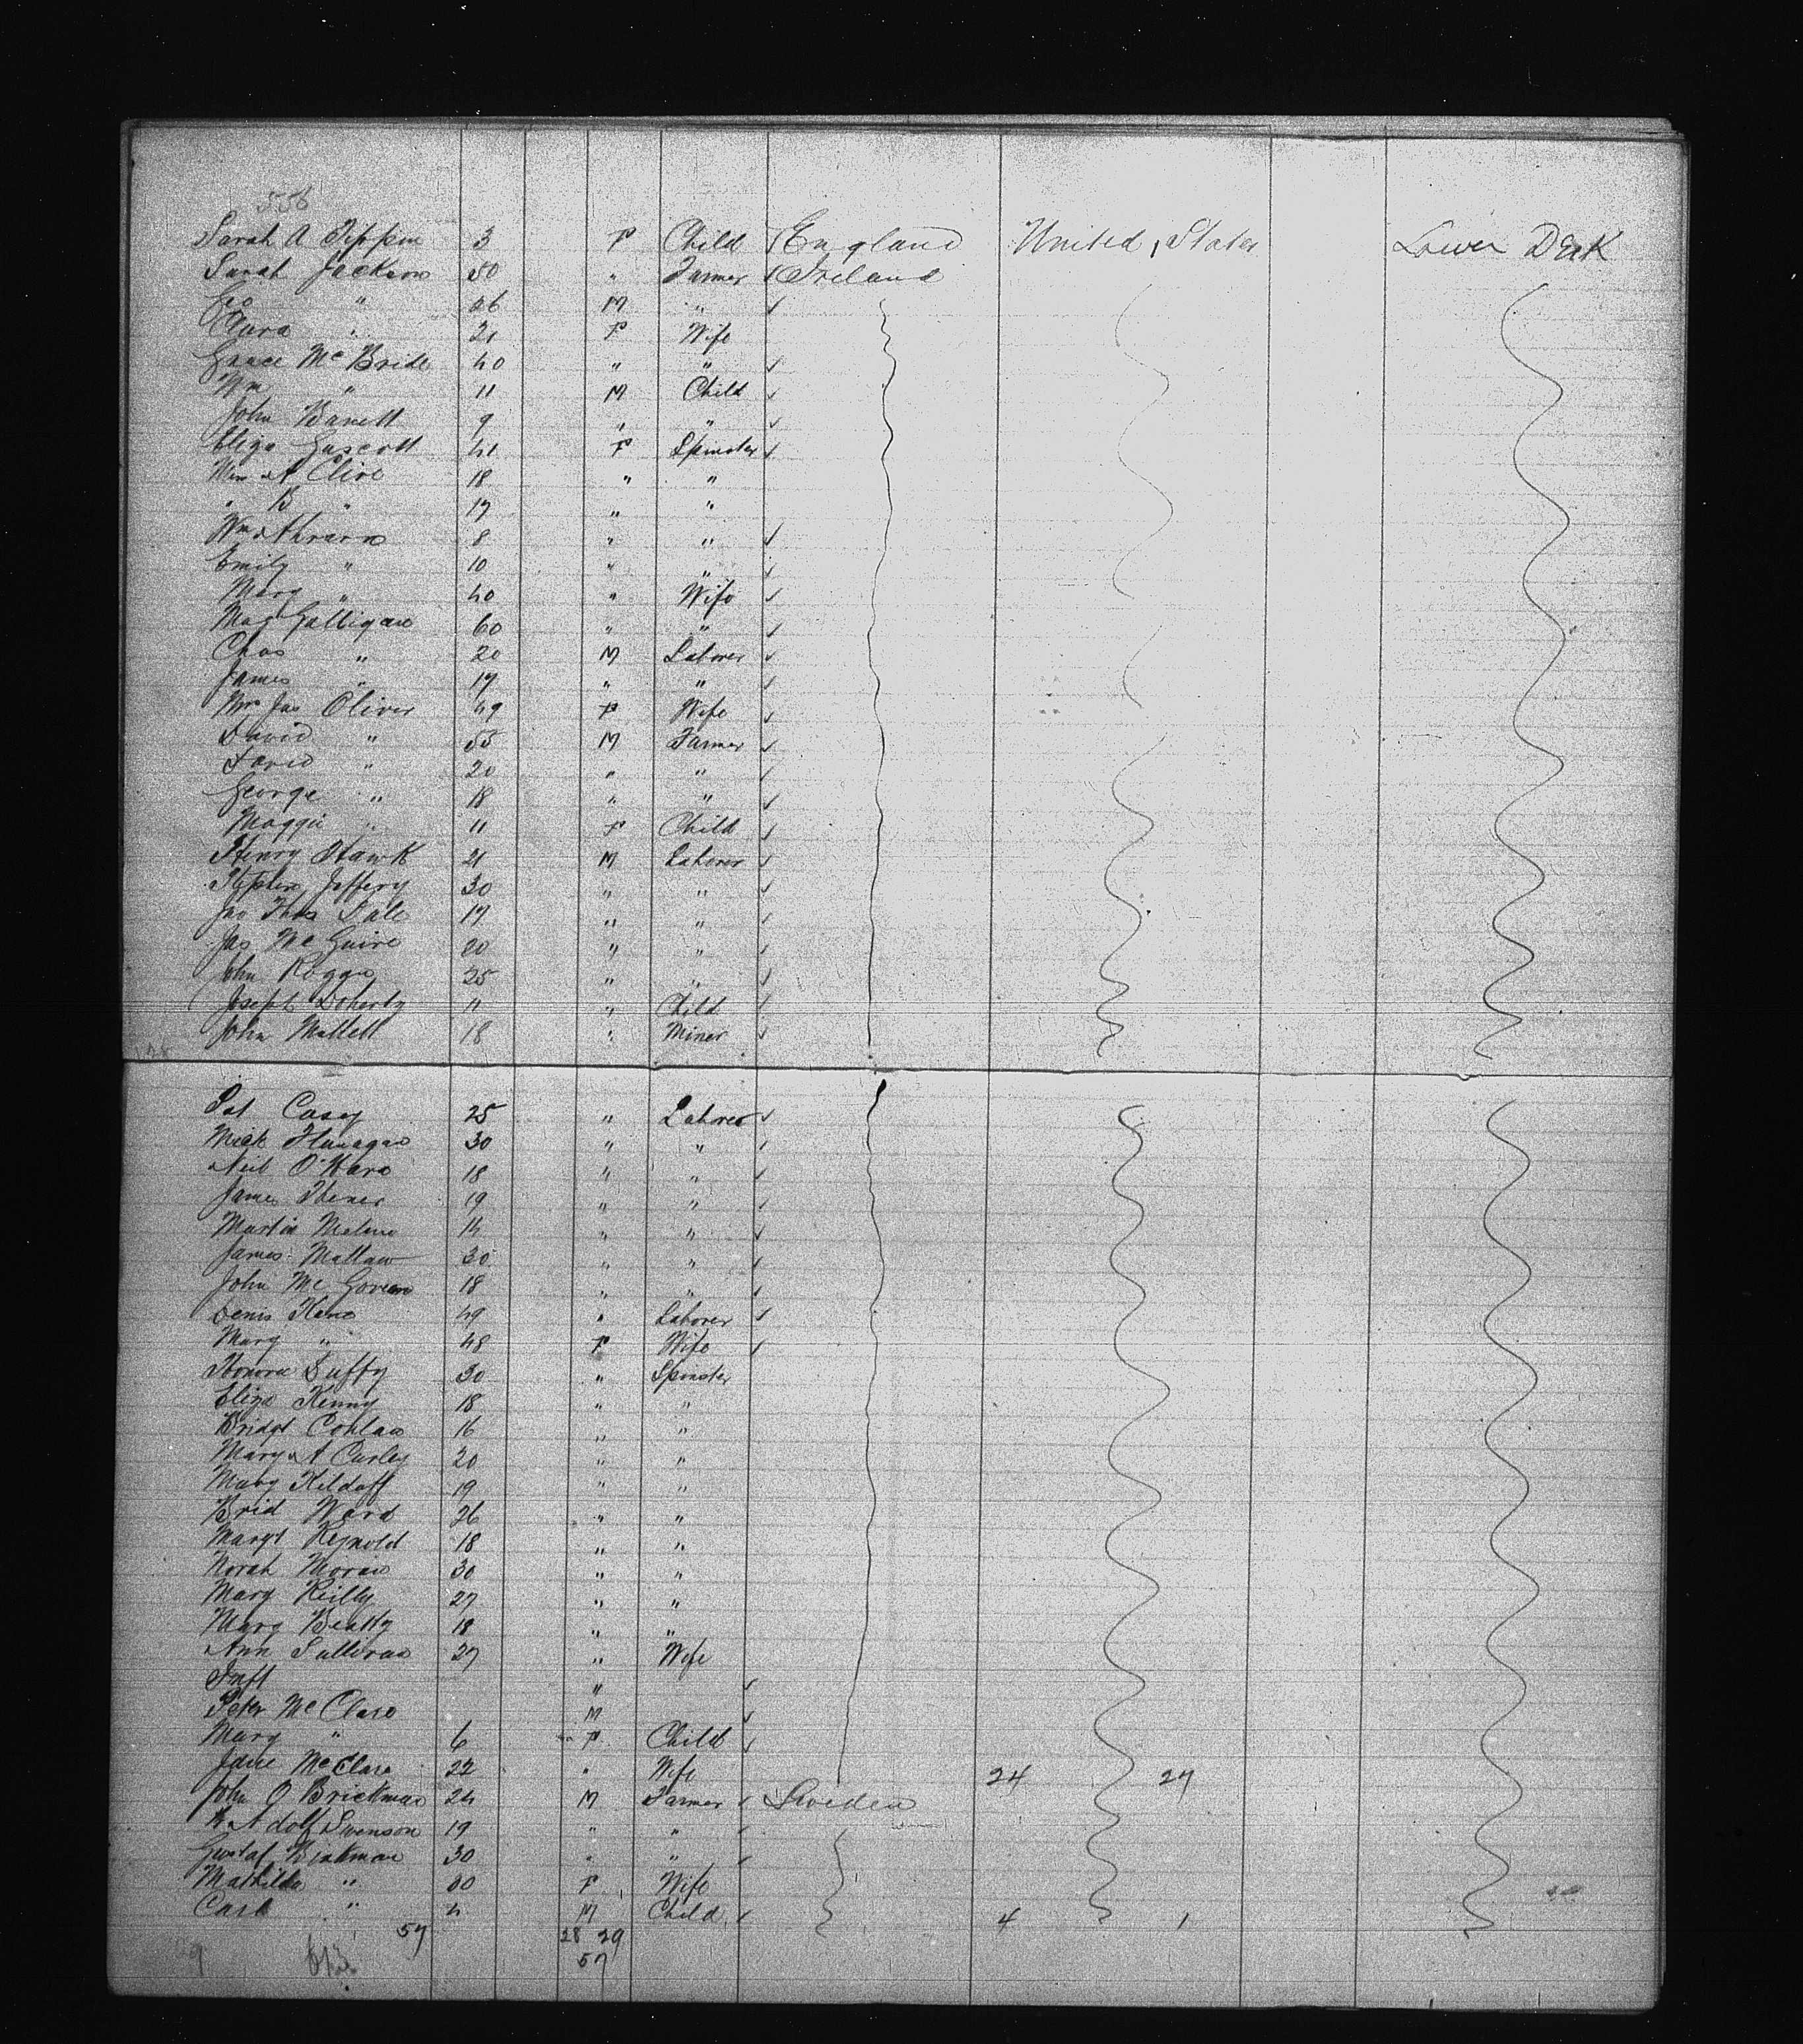 556
Sarah A Tippin 3 F Child England United States Lower Deck
Sarah Jackson 50 " Farmer Ireland
Geo " 26 M "
Clara " 21 F Wife
Grace McBride 40 " "
Wm " 11 M Child
John Barrett 9 " "
Eliza Gascott 41 F Spinster
A Clive 18 " "
" B " 17 " "
8 " "
Emily " 10 " "
Mary " 40 " Wife
Galligan 60 " "
Chas " 20 M Laborer
James " 17 " "
Mrs Jas Oliver 49 F Wife
David " 53 M Farmer
David " 20 " "
George " 18 " "
Maggie " 11 F Child
Henry Hawk 21 M Laborer
Stephen Jeffery 30 " "
Jno Thos Dale 17 " "
Jas McGuire 20 " "
John 25 " "
Joseph Doherty 11 " Child
John Mallett 18 " Miner
Pat Casey 25 " Laborer
Mick Flanagan 30 " "
Neil O'Hara 18 " "
James 19 " "
Martin 14 " "
James 30 " "
John McGovern 18 " "
Denis Kane 49 " Laborer
Mary " 48 F Wife
Honora Duffy 30 " Spinster
Eliza Kenny 18 " "
Bridgt Conlan 16 " "
Mary A Curley 20 " "
Mary Kilduff 19 " "
Brid Ward 26 " "
Margt Reynold 18 " "
Norah Moran 30 " "
Mary Reilly 27 " "
Mary Beatty 18 " "
Ann Sullivan 27 " Wife
Inft "
Peter McClare M
Mary " 6 F Child
Jane McClare 22 " Wife 24 27
John O Brickman 24 M Farmer Sweden
Adolf Swenson 19 " "
Gustaf 30 " "
Mathilda " 30 F Wife
Carl " 4 M Child 4 1
57 28 29
9 57